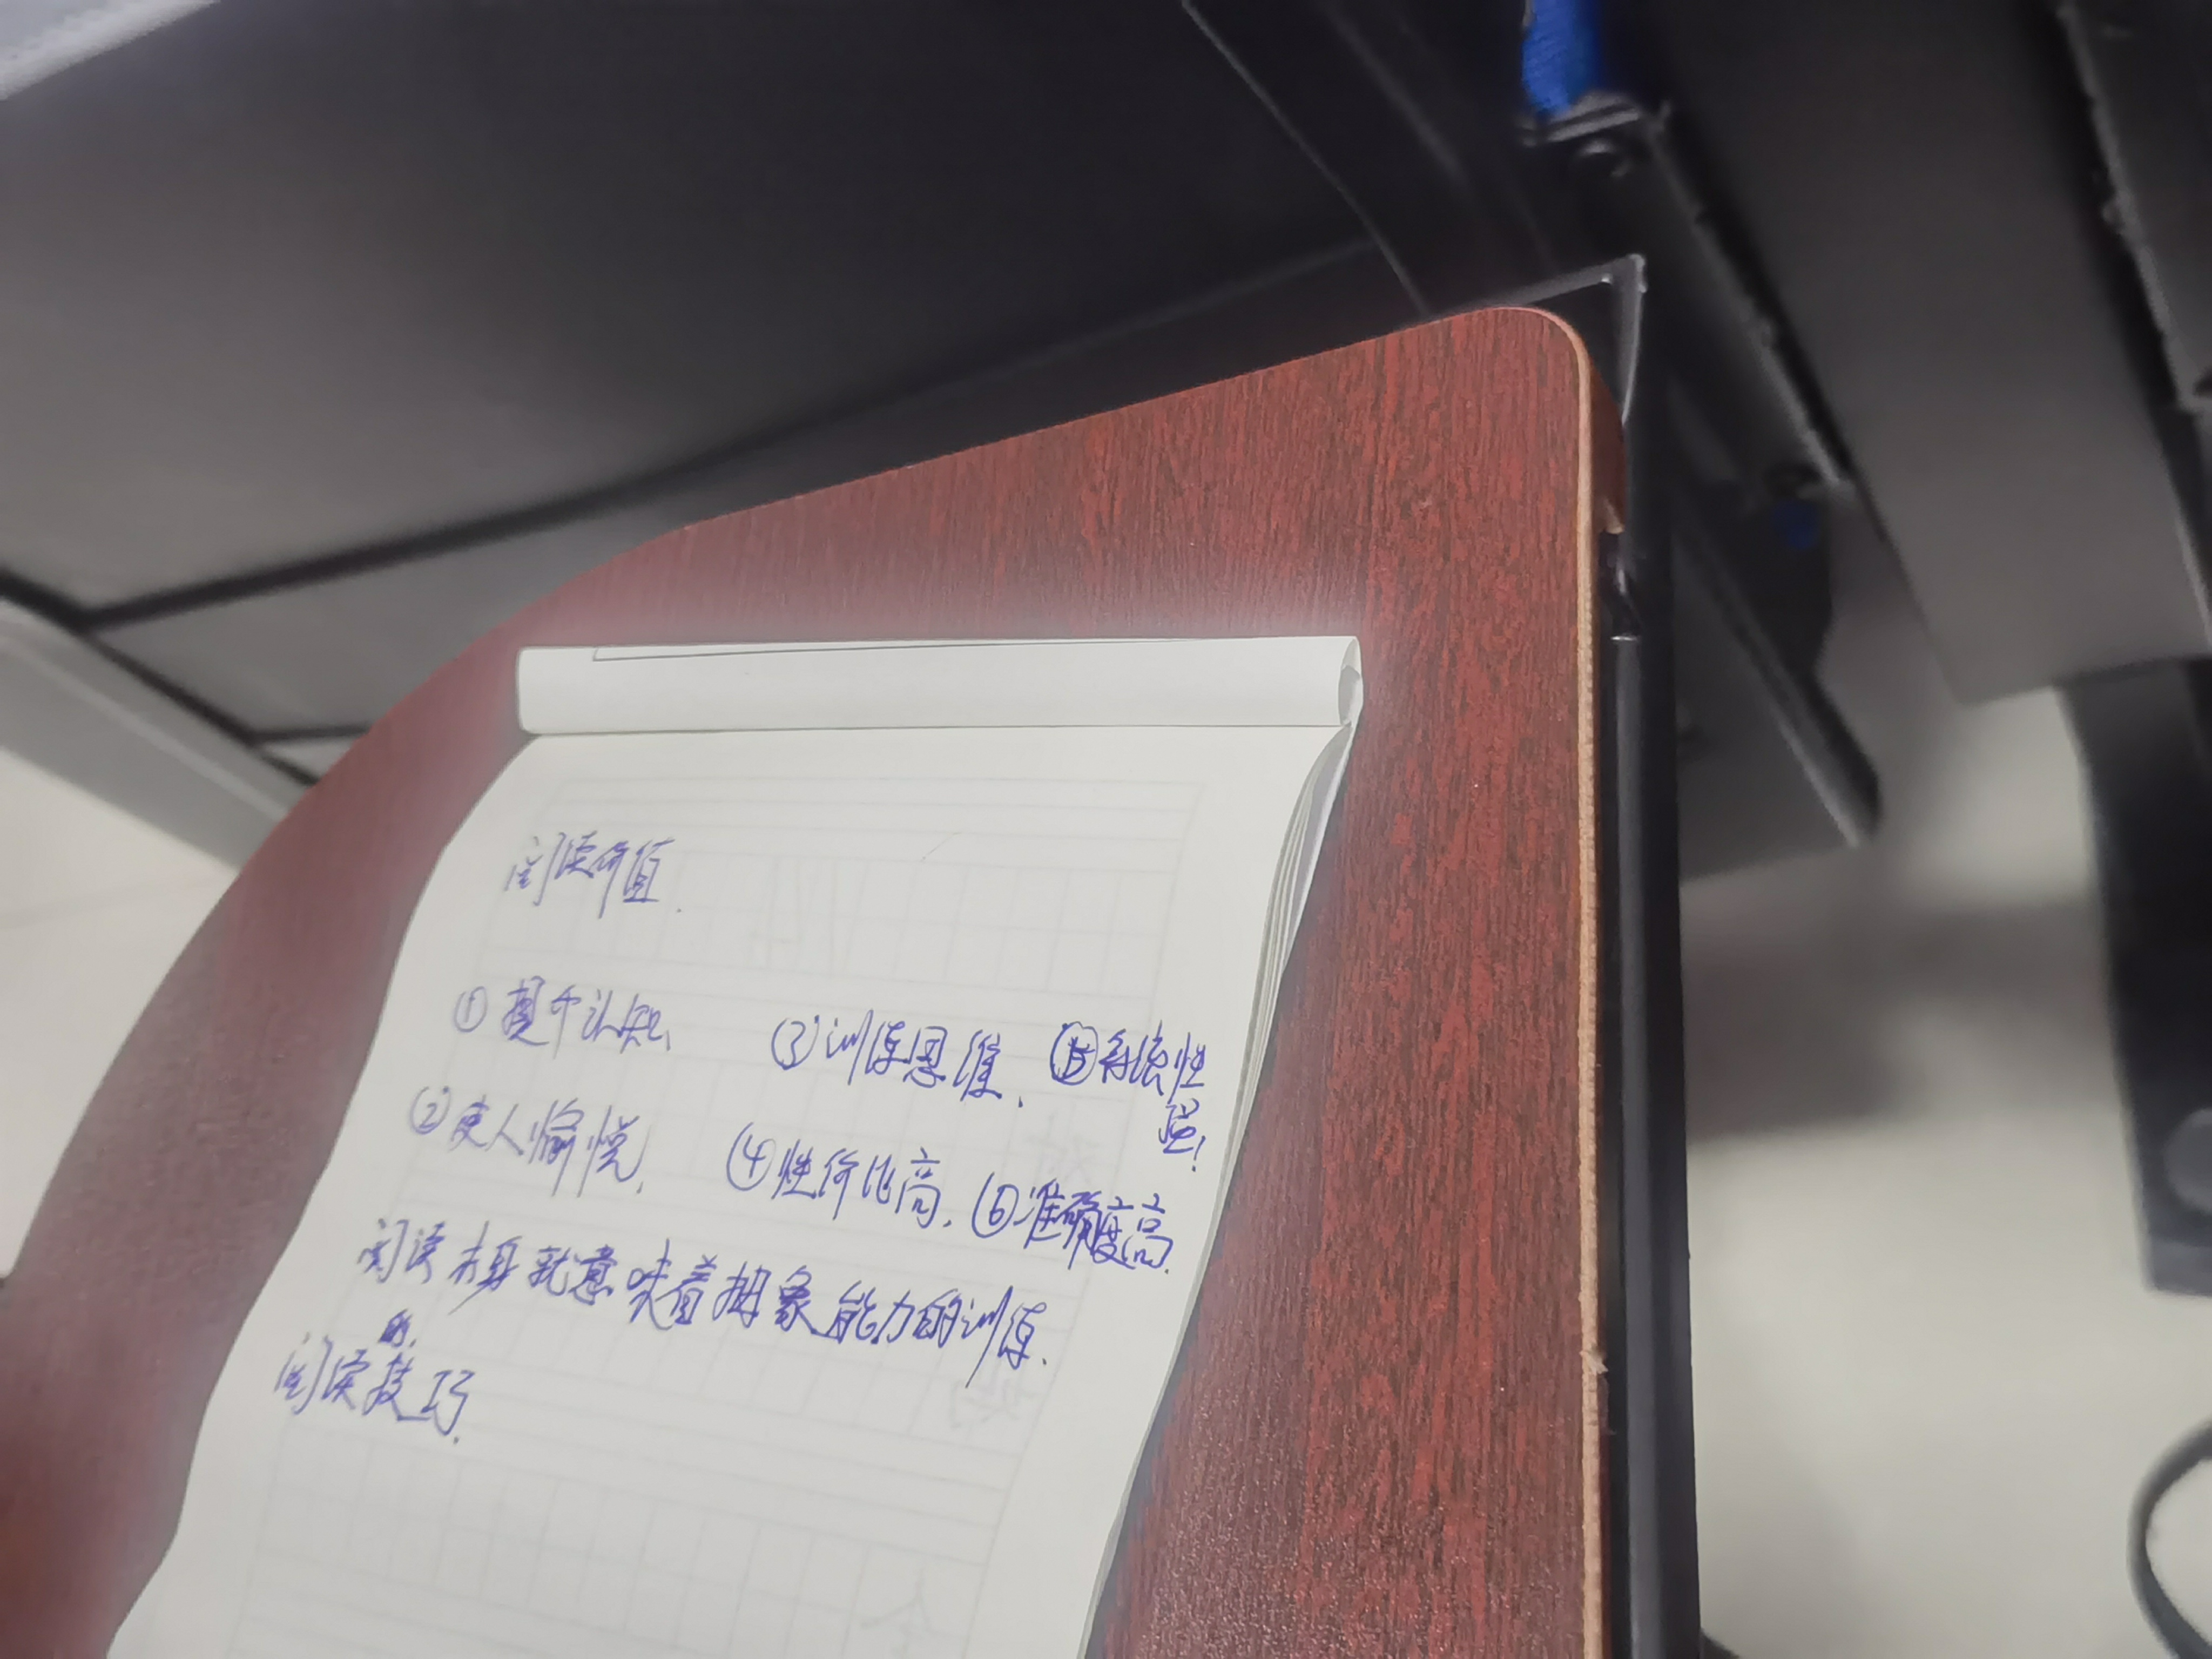 阅读价值.
① 提升认知、 ③ 训练思维、 ⑤ 系统性
强!
② 使人愉悦, ④ 性价比高, ⑥ 准确度高.
阅读本身就意味着抽象能力的训练.
的,
阅读技巧.